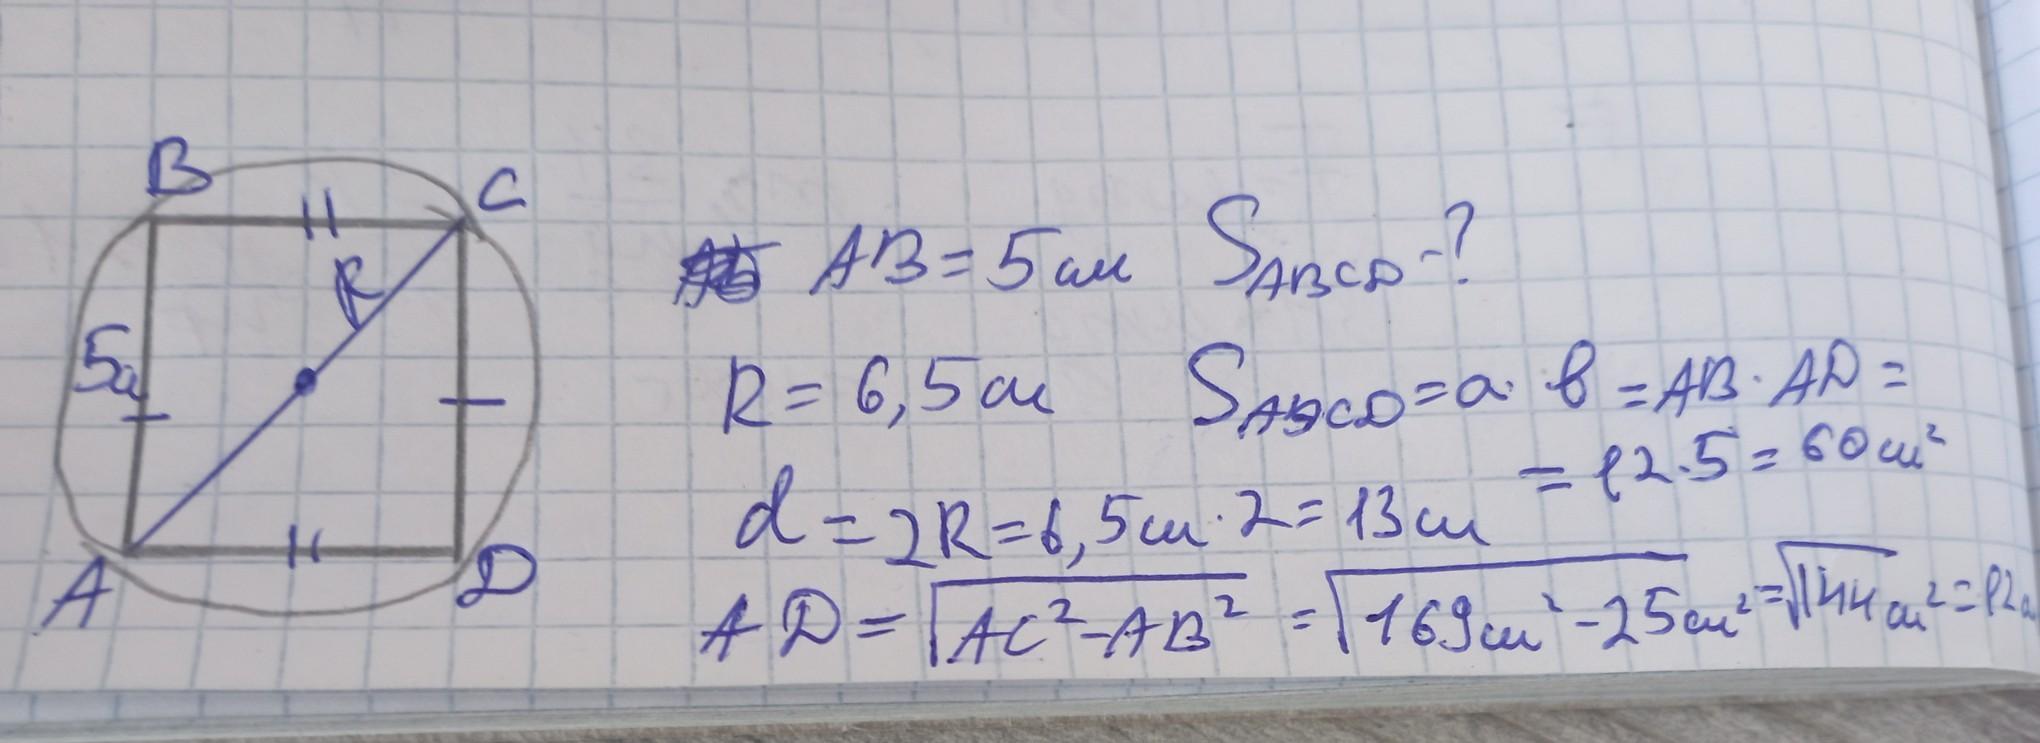 B
C
R
5
A
D
AB = 5 см S_ABCD - ?
R = 6,5 см S_ABCD = a · b = AB · AD =
= 12 · 5 = 60 см²
d = 2R = 6,5 см · 2 = 13 см
AD = √(AC² - AB²) = √(169 см² - 25 см²) = √(144 см²) = 12